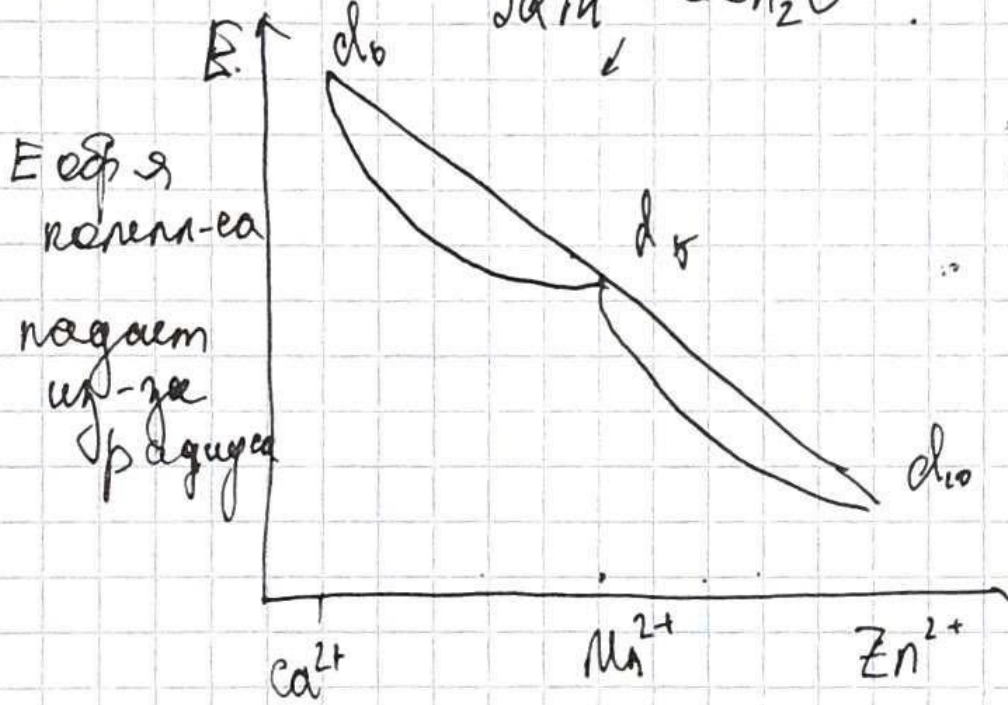 E.
d₀
E обр я
компл-са
падает
из-за
радиуса
d₅
d₁₀
Ca²⁺
Mn²⁺
Zn²⁺